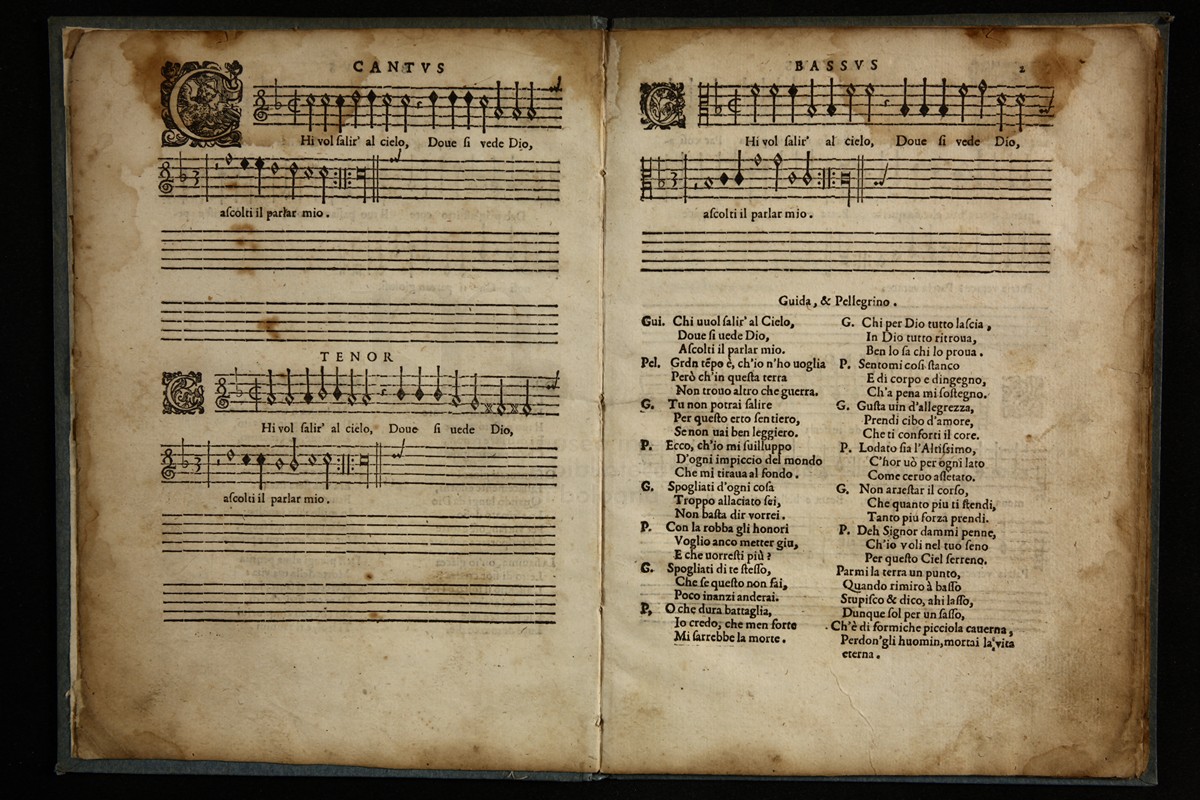 CANTVS
CHi vol ſalir' al cielo, Doue ſi vede Dio,
aſcolti il parlar mio.
TENOR
CHi vol ſalir' al cielo, Doue ſi uede Dio,
aſcolti il parlar mio.
BASSVS 2
CHi vol ſalir' al cielo, Doue ſi vede Dio,
aſcolti il parlar mio.
Guida, & Pellegrino.
Gui. Chi uuol ſalir' al Cielo,
Doue ſi uede Dio,
Aſcolti il parlar mio.
Pel. Grdn tẽpo è, ch'io n'ho uoglia
Però ch'in queſta terra
Non trouo altro che guerra.
G. Tu non potrai ſalire
Per queſto erto ſentiero,
Se non uai ben leggiero.
P. Ecco, ch'io mi ſuiluppo
D'ogni impiccio del mondo
Che mi tiraua al fondo.
G. Spogliati d'ogni coſa
Troppo allaciato ſei,
Non baſta dir vorrei.
P. Con la robba gli honori
Voglio anco metter giu,
E che uorreſti più?
G. Spogliati di te ſteſſo,
Che ſe queſto non fai,
Poco inanzi anderai.
P, O che dura battaglia,
Io credo, che men forte
Mi ſarrebbe la morte.
G. Chi per Dio tutto laſcia,
In Dio tutto ritroua,
Ben lo ſa chi lo proua.
P. Sentomi coſi ſtanco
E di corpo e dingegno,
Ch'a pena mi ſoſtegno.
G. Guſta uin d'allegrezza,
Prendi cibo d'amore,
Che ti conforti il core.
P. Lodato ſia l'Altiſſimo,
C'hor uò per ogni lato
Come ceruo aſſetato.
G. Non arreſtar il corſo,
Che quanto piu ti ſtendi,
Tanto piu forza prendi.
P. Deh Signor dammi penne,
Ch'io voli nel tuo ſeno
Per queſto Ciel ſerreno.
Parmi la terra un punto,
Quando rimiro à baſſo
Stupiſco & dico, ahi laſſo,
Dunque ſol per un ſaſſo,
Ch'è di formiche picciola cauerna,
Perdon'gli huomin, mortai la vita
eterna.